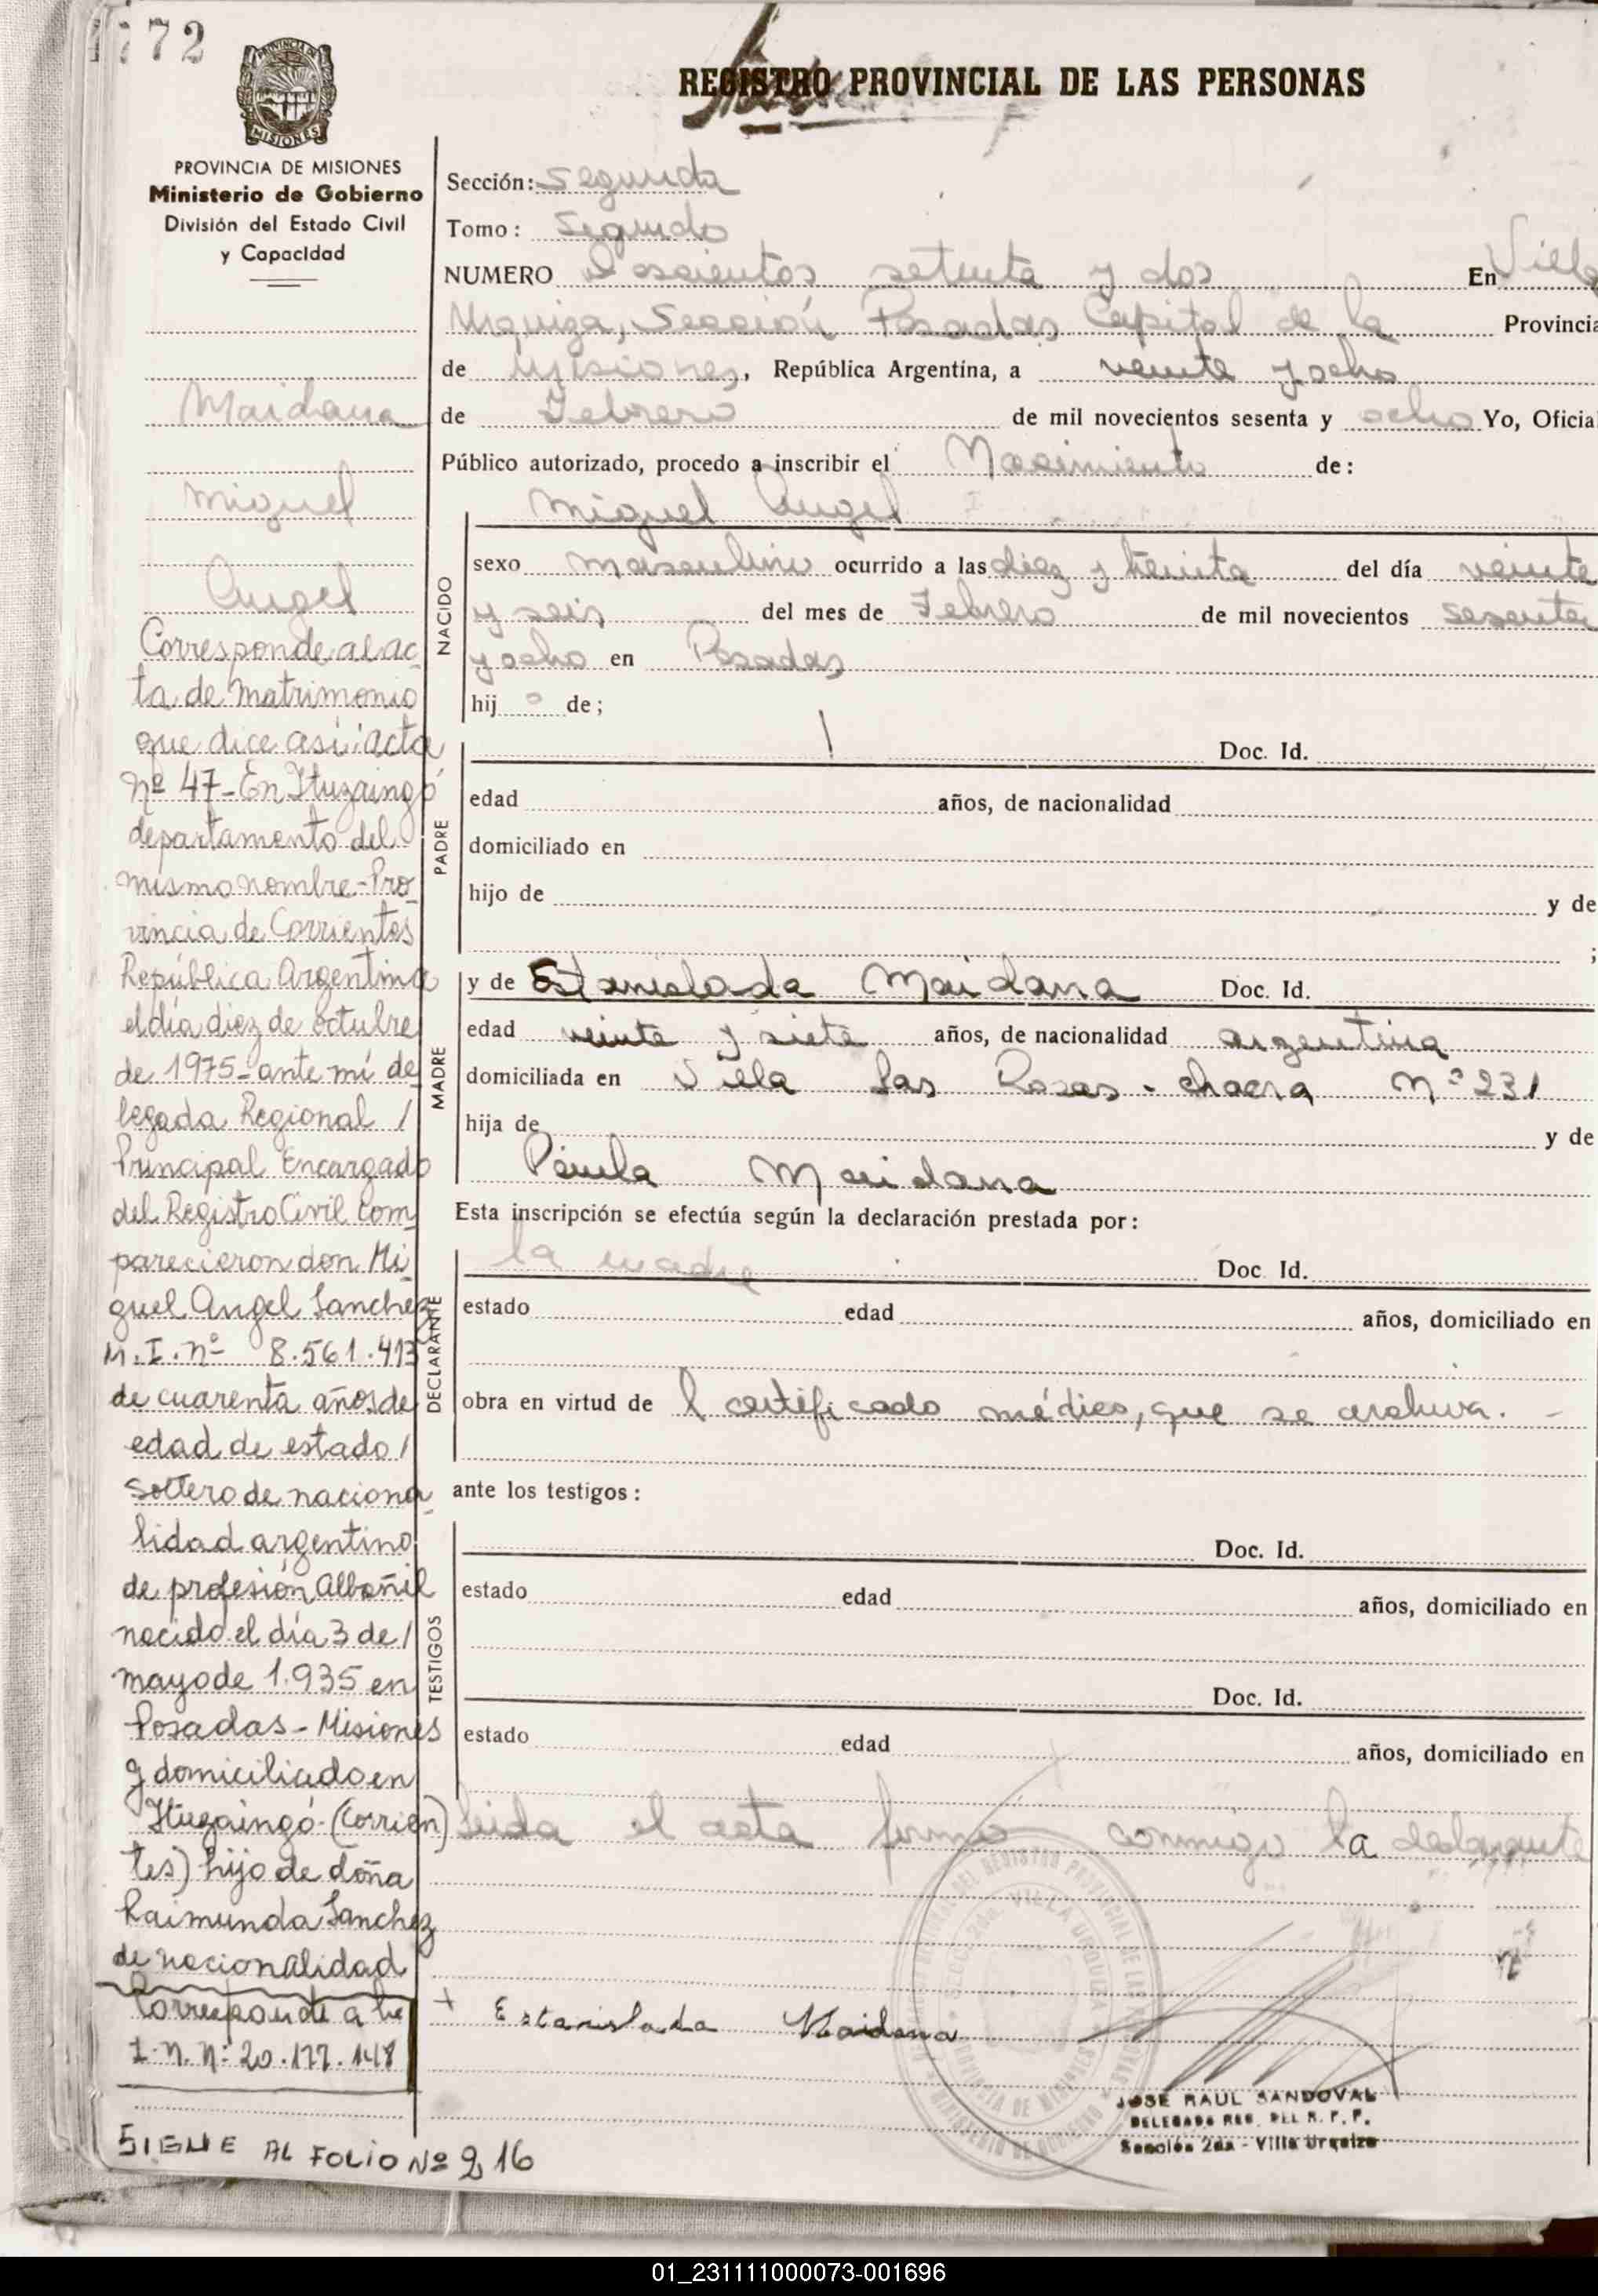 772
REGISTRO PROVINCIAL DE LAS PERSONAS
MISIONES
PROVINCIA DE MISIONES
Ministerio de Gobierno
División del Estado Civil
y Capacidad
Maidana
Miguel
Angel
Corresponde al ac-
ta de Matrimonio
que dice así: acta
nº 47-En Ituzaingó
departamento del
mismo nombre-Pro-
vincia de Corrientes
República Argentina
el día diez de octubre
de 1975-ante mí de
legada Regional /
Principal Encargado
del Registro Civil com
parecieron don Mi-
guel Angel Sanchez
M.I. nº 8.561.413
de cuarenta años de
edad de estado /
soltero de naciona-
lidad argentino
de profesión Albañil
nacido el día 3 de /
mayo de 1.935 en
Posadas-Misiones
y domiciliado en
Ituzaingó-(Corrien
tes) hijo de doña
Raimunda Sanchez
de nacionalidad
Corresponde a la
I.N. Nº 20.177.148
SIGUE AL FOLIO Nº 216
Sección: Segunda
Tomo: Segundo
NUMERO Doscientos setenta y dos En Villa
Urquiza, Sección Posadas Capital de la Provincia
de Misiones, República Argentina, a veinte y ocho
de Febrero de mil novecientos sesenta y ocho Yo, Oficial
Público autorizado, procedo a inscribir el Nacimiento de:
Miguel Angel
NACIDO
sexo masculino ocurrido a las diez y treinta del día veinte
y seis del mes de Febrero de mil novecientos sesenta
y ocho en Posadas
hij o de;
PADRE
Doc. Id.
edad años, de nacionalidad
domiciliado en
hijo de y de
;
MADRE
y de Estanislada Maidana Doc. Id.
edad veinte y siete años, de nacionalidad argentina
domiciliada en Villa Las Rosas - chacra Nº 231
hija de y de
Maidana
Esta inscripción se efectúa según la declaración prestada por:
DECLARANTE
la madre Doc. Id.
estado edad años, domiciliado en
obra en virtud de l certificado médico, que se archiva. -
ante los testigos:
TESTIGOS
Doc. Id.
estado edad años, domiciliado en
Doc. Id.
estado edad años, domiciliado en
Leida el acta firma conmigo la declarante
Estanislada Maidana
VILLA URQUIZA
JOSE RAUL SANDOVAL
DELEGADO REG. DEL R. P. P.
Sección 2da - Villa Urquiza
01_231111000073-001696